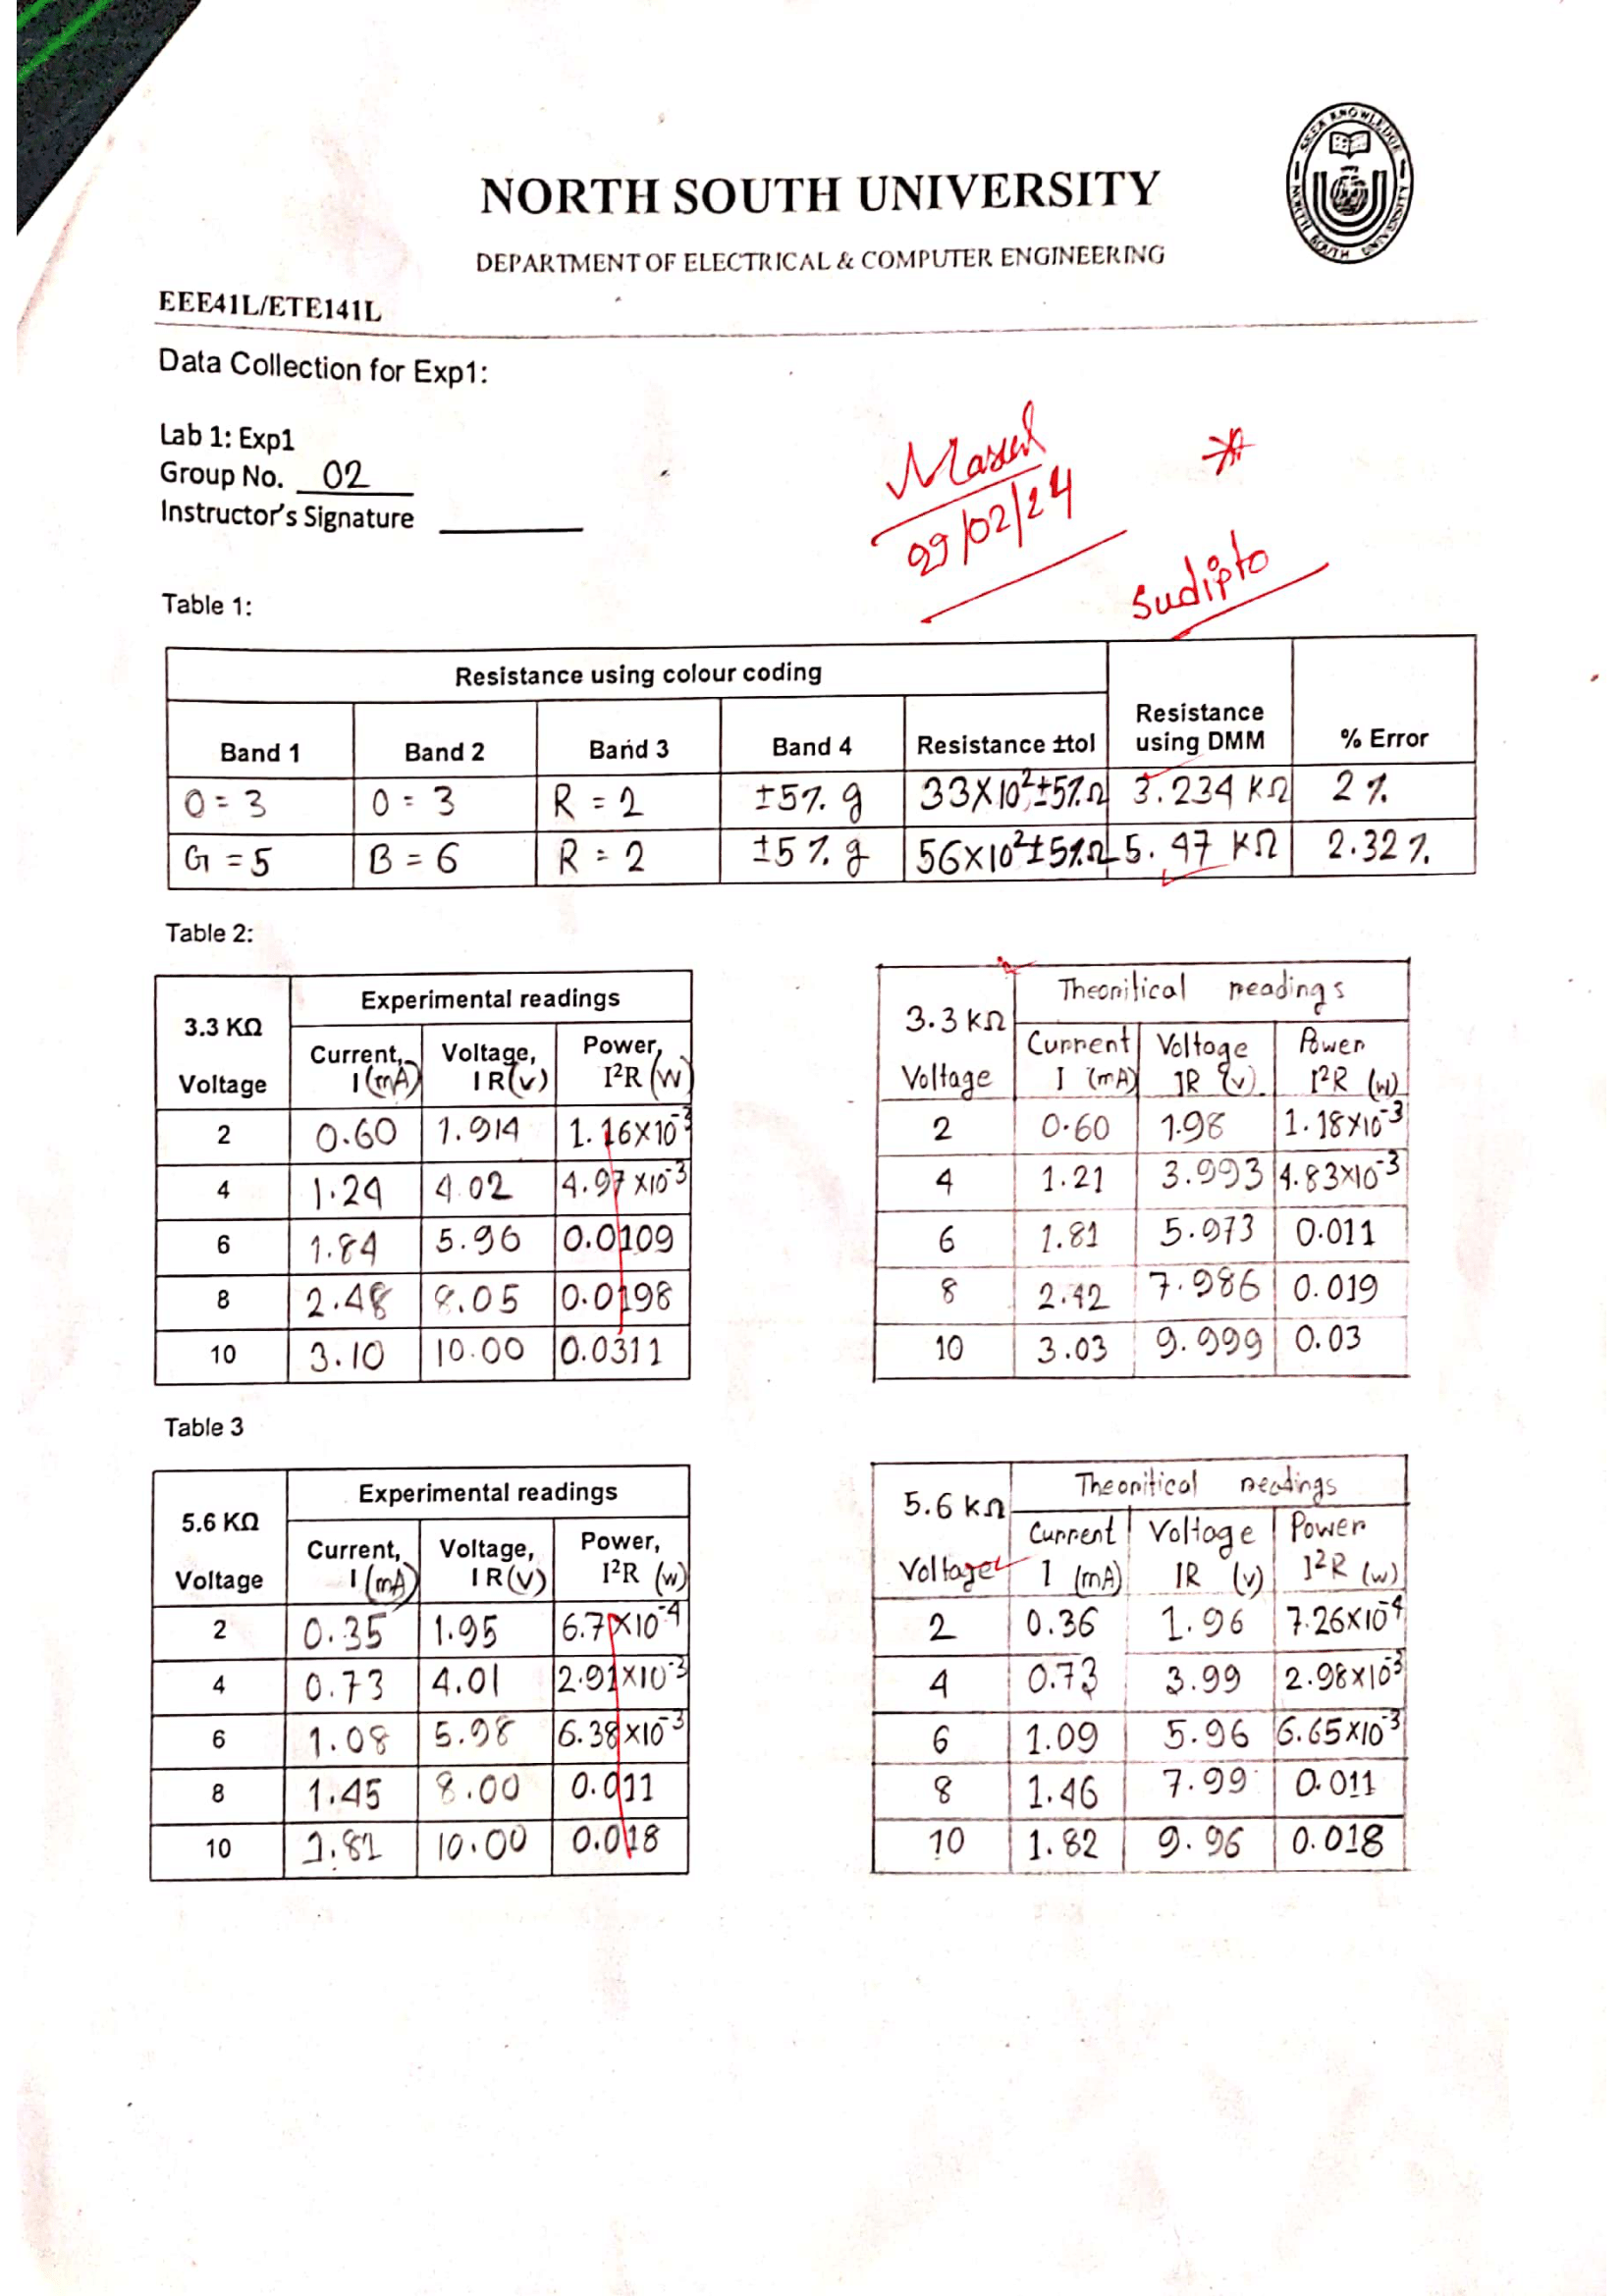 SEEK KNOWLEDGE
NORTH SOUTH UNIVERSITY
NORTH SOUTH UNIVERSITY
DEPARTMENT OF ELECTRICAL & COMPUTER ENGINEERING
EEE41L/ETE141L
Data Collection for Exp1:
Lab 1: Exp1
Group No. 02
Instructor's Signature
29/02/24
Sudipto
Table 1:
Resistance using colour coding
Resistance using DMM
% Error
Band 1 Band 2 Band 3 Band 4 Resistance ±tol
O = 3 O = 3 R = 2 ±5% g 33X10²±5%Ω 3.234 KΩ 2 %
G = 5 B = 6 R = 2 ±5% g 56X10²±5%Ω 5.47 KΩ 2.32 %
Table 2:
3.3 KΩ Experimental readings
Voltage Current, I (mA) Voltage, IR (v) Power, I²R (W)
2 0.60 1.914 1.16X10⁻³
4 1.24 4.02 4.97 X10⁻³
6 1.84 5.96 0.0109
8 2.48 8.05 0.0198
10 3.10 10.00 0.0311
3.3 kΩ Theoritical readings
Voltage Current I (mA) Voltage IR (v) Power I²R (w)
2 0.60 1.98 1.18X10⁻³
4 1.21 3.993 4.83X10⁻³
6 1.81 5.973 0.011
8 2.42 7.986 0.019
10 3.03 9.999 0.03
Table 3
5.6 KΩ Experimental readings
Voltage Current, I (mA) Voltage, IR (V) Power, I²R (w)
2 0.35 1.95 6.71X10⁻⁴
4 0.73 4.01 2.91X10⁻³
6 1.08 5.98 6.38X10⁻³
8 1.45 8.00 0.011
10 1.81 10.00 0.018
5.6 kΩ Theoritical readings
Voltage Current I (mA) Voltage IR (v) Power I²R (w)
2 0.36 1.96 7.26X10⁻⁴
4 0.73 3.99 2.98X10⁻³
6 1.09 5.96 6.65X10⁻³
8 1.46 7.99 0.011
10 1.82 9.96 0.018